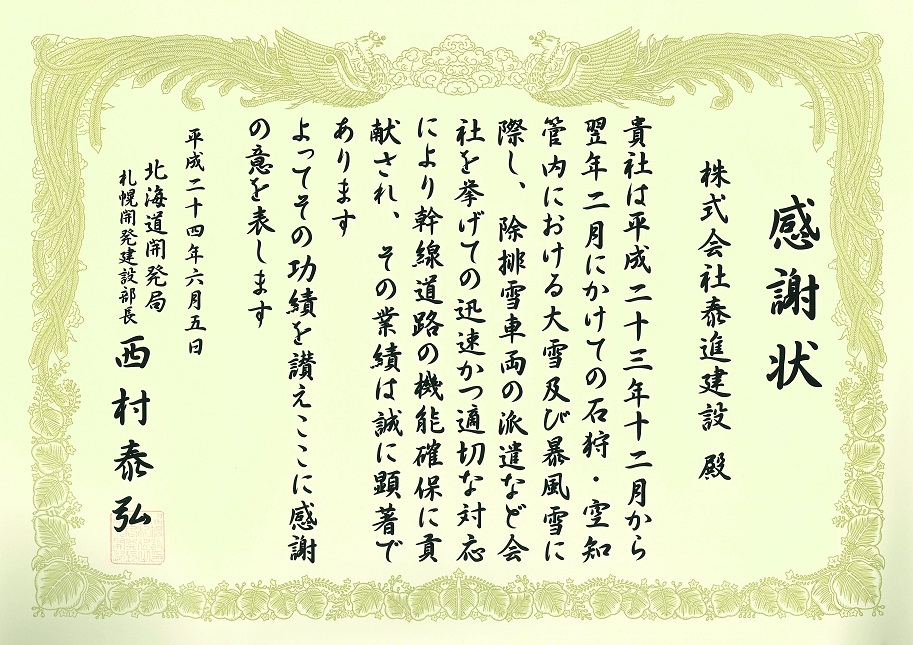 感謝状
株式会社泰進建設 殿
貴社は平成二十三年十二月から
翌年二月にかけての石狩・空知
管内における大雪及び暴風雪に
際し、除排雪車両の派遣など会
社を挙げての迅速かつ適切な対応
により幹線道路の機能確保に貢
献され、その業績は誠に顕著で
あります
よってその功績を讃えここに感謝
の意を表します
平成二十四年六月五日
北海道開発局
札幌開発建設部長
西村泰弘